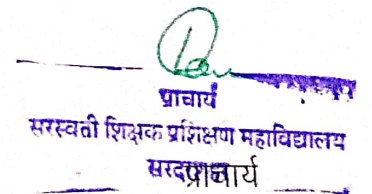 प्राचार्य
सरस्वती शिक्षक प्रशिक्षण महाविद्यालय
प्राचार्य